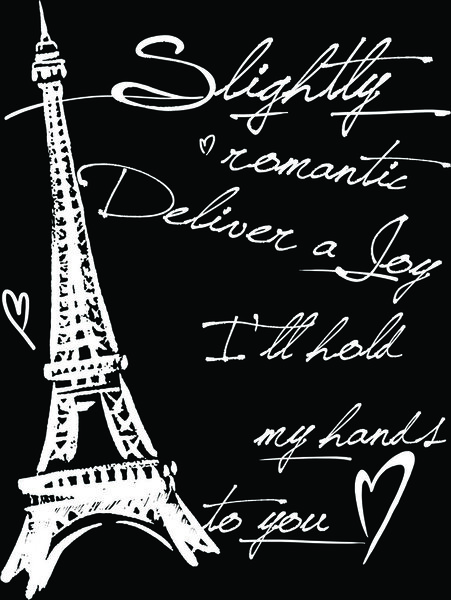 Slightly
romantic
Deliver a Joy
I'll hold
my hands
to you